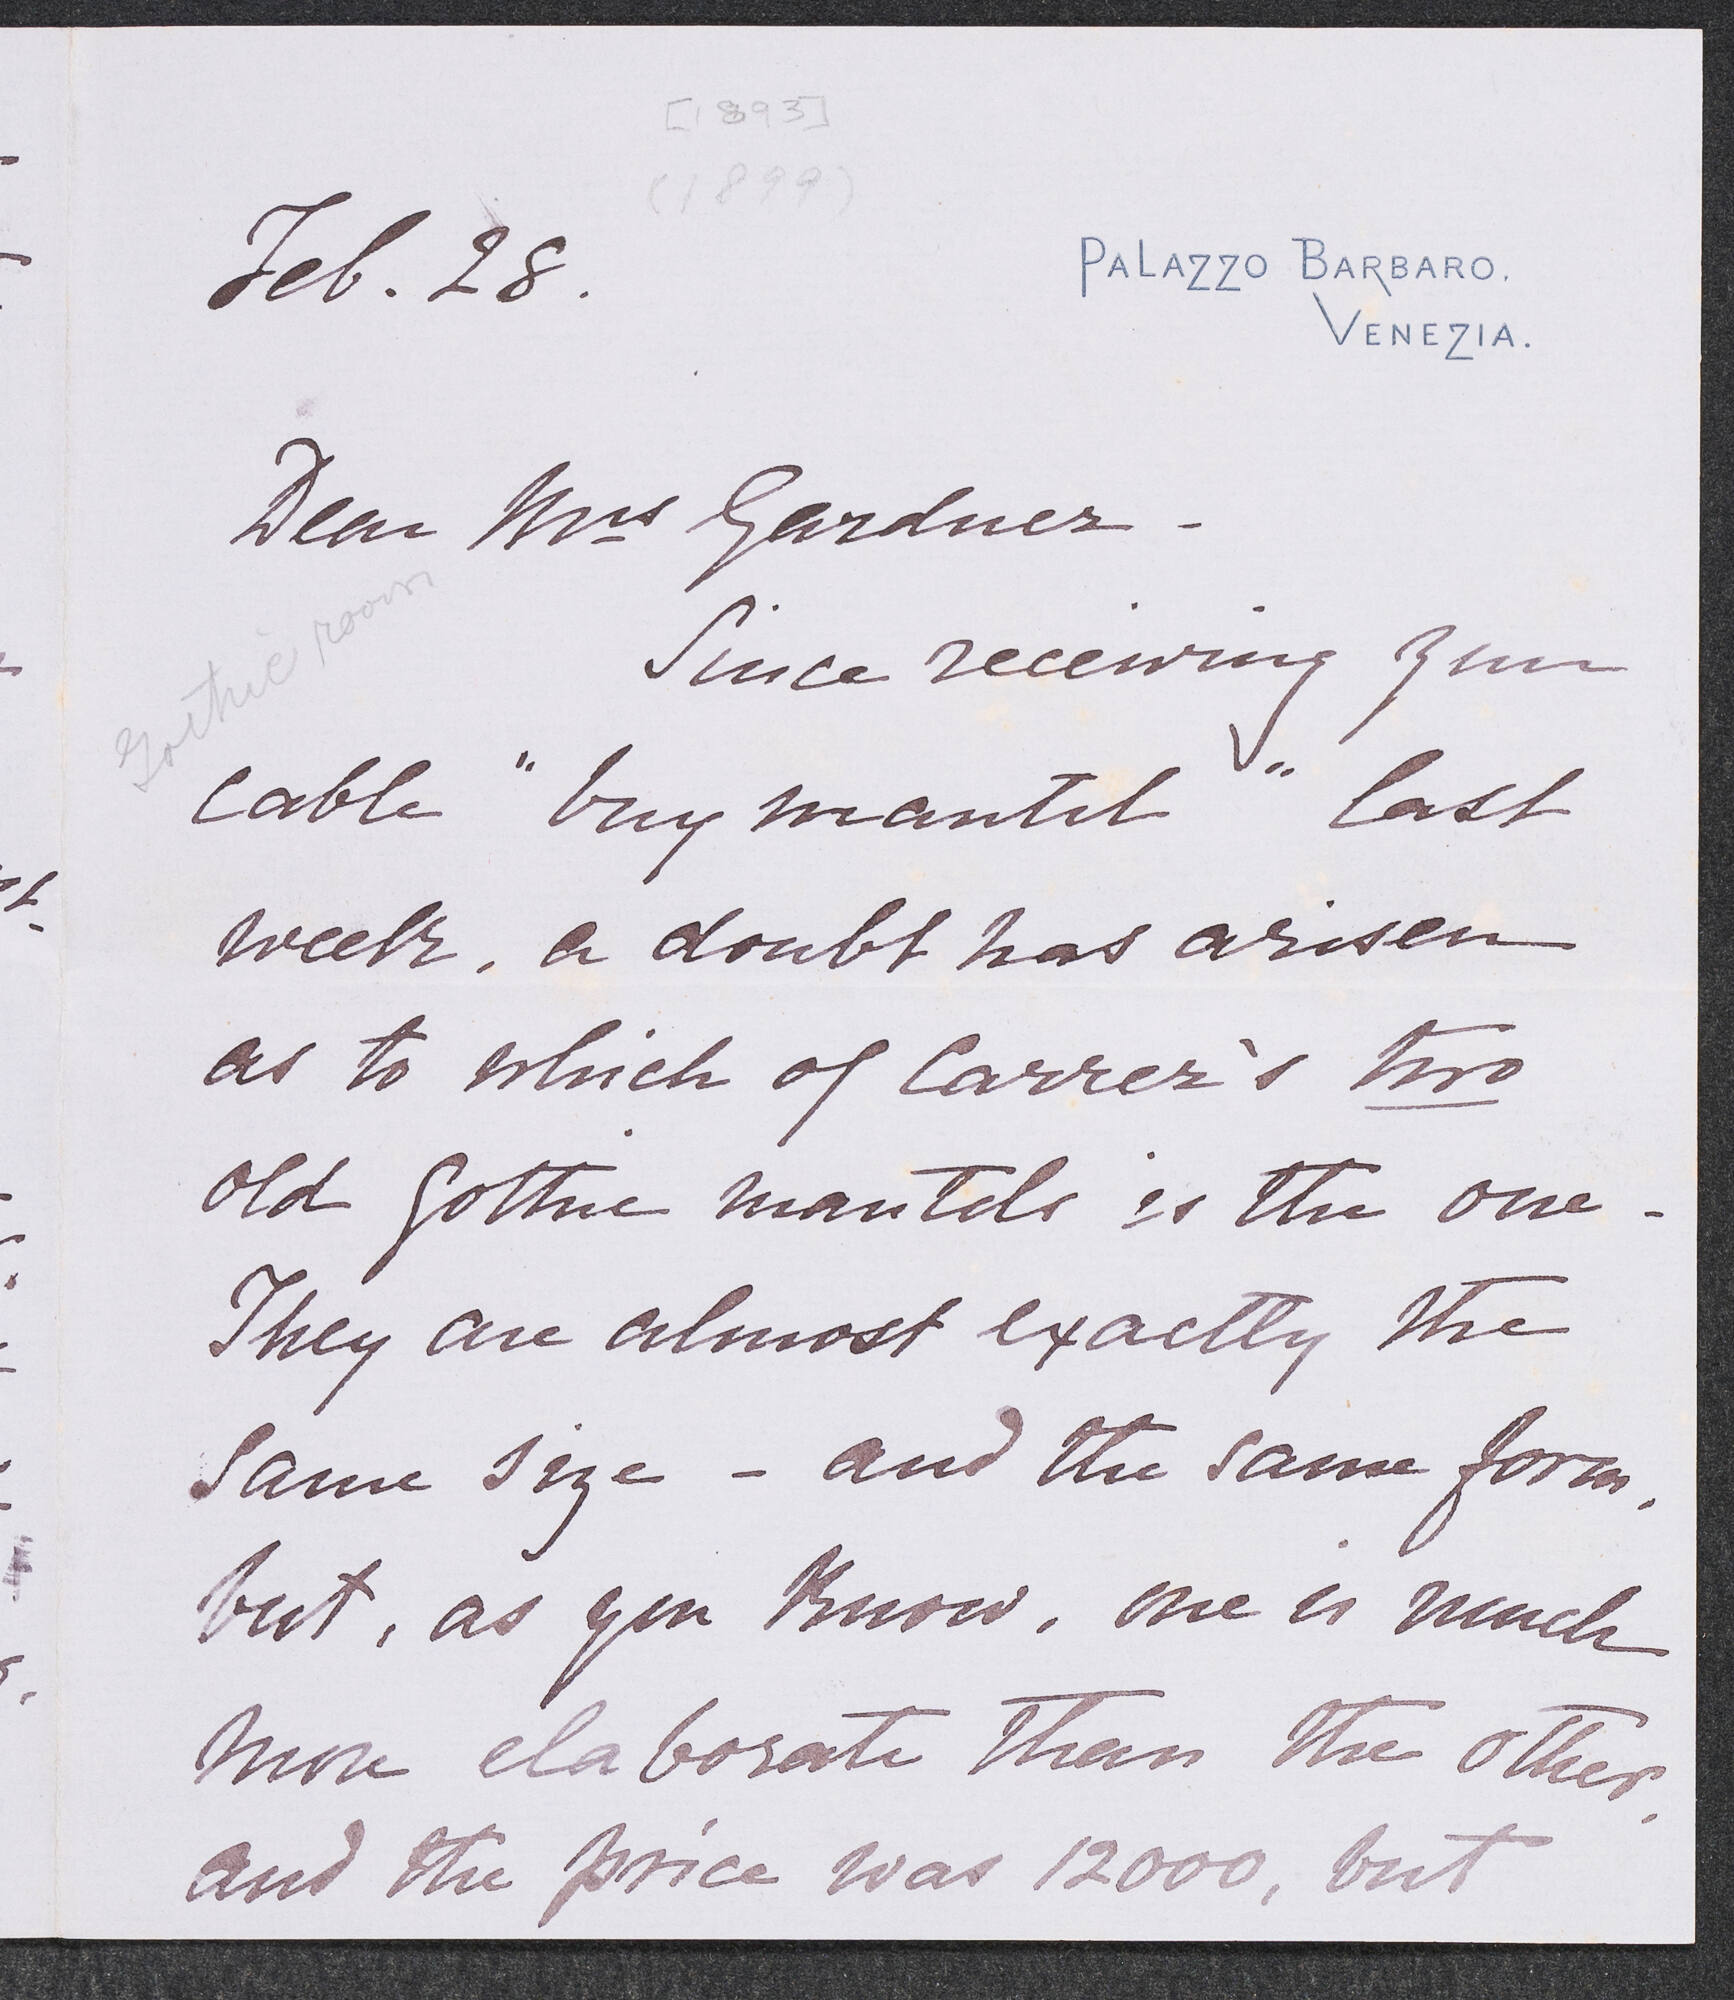 [1893]
(1899)
Feb. 28.
PALAZZO BARBARO.
VENEZIA.
Dear Mrs Gardner -
Gothic room
Since receiving your
cable "buy mantel" last
week, a doubt has arisen
as to which of Carrer's two
old Gothic mantels is the one -
They are almost exactly the
same size - and the same form,
but, as you know, one is much
more elaborate than the other,
and the price was 12000, but